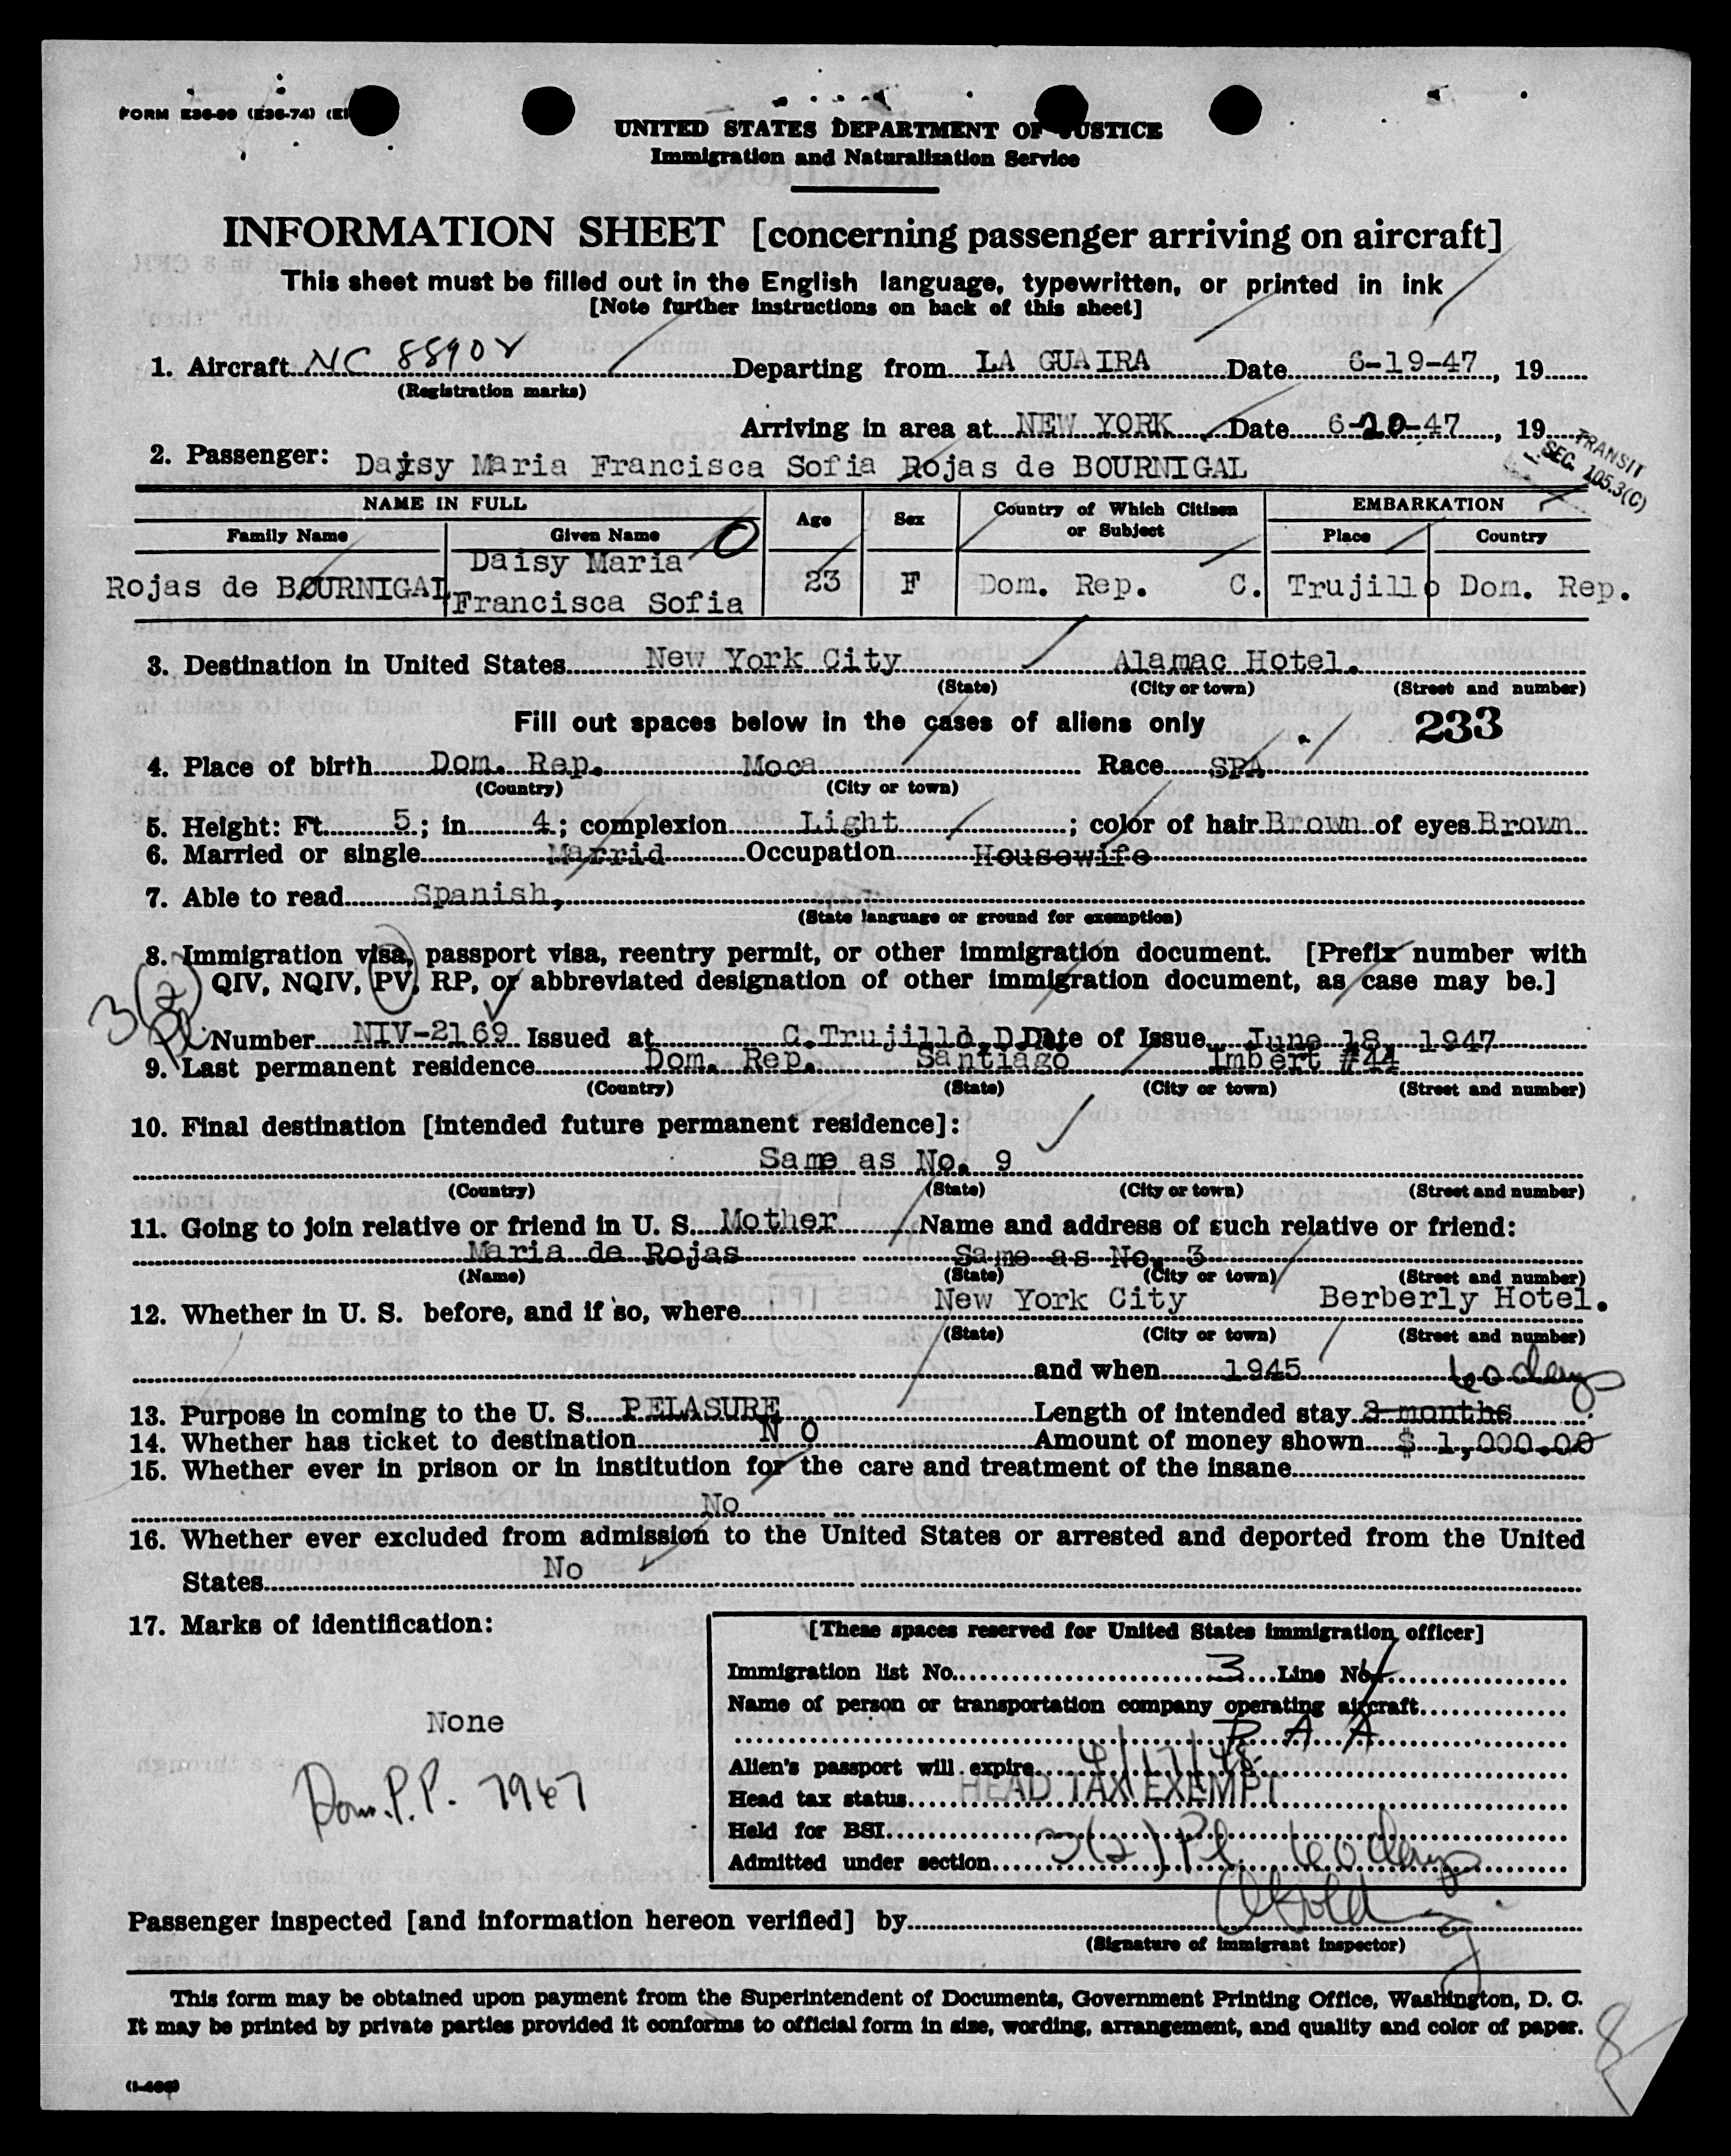 FORM E36-99 (E36-74)
UNITED STATES DEPARTMENT OF JUSTICE
Immigration and Naturalization Service
INFORMATION SHEET [concerning passenger arriving on aircraft]
This sheet must be filled out in the English language, typewritten, or printed in ink
[Note further instructions on back of this sheet]
1. Aircraft NC 88902 Departing from LA GUAIRA Date 6-19-47, 19
(Registration marks)
Arriving in area at NEW YORK Date 6-20-47, 19
TRANSIT
SEC. 105.3(C)
2. Passenger: Daisy Maria Francisca Sofia Rojas de BOURNIGAL
NAME IN FULL Age Sex Country of Which Citizen or Subject EMBARKATION
Family Name Given Name Place Country
Rojas de BOURNIGAL Daisy Maria Francisca Sofia 23 F Dom. Rep. C. Trujillo Dom. Rep.
3. Destination in United States New York City Alamac Hotel.
(State) (City or town) (Street and number)
Fill out spaces below in the cases of aliens only 233
4. Place of birth Dom. Rep. Moca Race SPA
(Country) (City or town)
5. Height: Ft. 5; in. 4; complexion Light; color of hair Brown of eyes Brown
6. Married or single Marrid Occupation Housewife
7. Able to read Spanish,
(State language or ground for exemption)
8. Immigration visa, passport visa, reentry permit, or other immigration document. [Prefix number with
QIV, NQIV, PV, RP, or abbreviated designation of other immigration document, as case may be.]
3(2) Pl
Number NIV-2169 Issued at C.Trujillo,D.D Date of Issue June 18, 1947
9. Last permanent residence Dom. Rep. Santiago Imbert #44
(Country) (State) (City or town) (Street and number)
10. Final destination [intended future permanent residence]:
Same as No. 9
(Country) (State) (City or town) (Street and number)
11. Going to join relative or friend in U. S. Mother Name and address of such relative or friend:
Maria de Rojas Same as No. 3
(Name) (State) (City or town) (Street and number)
12. Whether in U. S. before, and if so, where New York City Berberly Hotel.
(State) (City or town) (Street and number)
and when 1945 60 days
13. Purpose in coming to the U. S. PELASURE Length of intended stay 3 months
14. Whether has ticket to destination N O Amount of money shown $ 1,000.00
15. Whether ever in prison or in institution for the care and treatment of the insane
No
16. Whether ever excluded from admission to the United States or arrested and deported from the United
States No
17. Marks of identification:
None
Dom. P.P. 7967
[These spaces reserved for United States immigration officer]
Immigration list No. 3 Line No. 1
Name of person or transportation company operating aircraft
P. A. A.
Alien's passport will expire 4/17/48
Head tax status HEAD TAX EXEMPT
Held for BSI
Admitted under section 3(2) Pl 60 days
Passenger inspected [and information hereon verified] by
(Signature of immigrant inspector)
This form may be obtained upon payment from the Superintendent of Documents, Government Printing Office, Washington, D. C.
It may be printed by private parties provided it conforms to official form in size, wording, arrangement, and quality and color of paper.
(I-466)
8